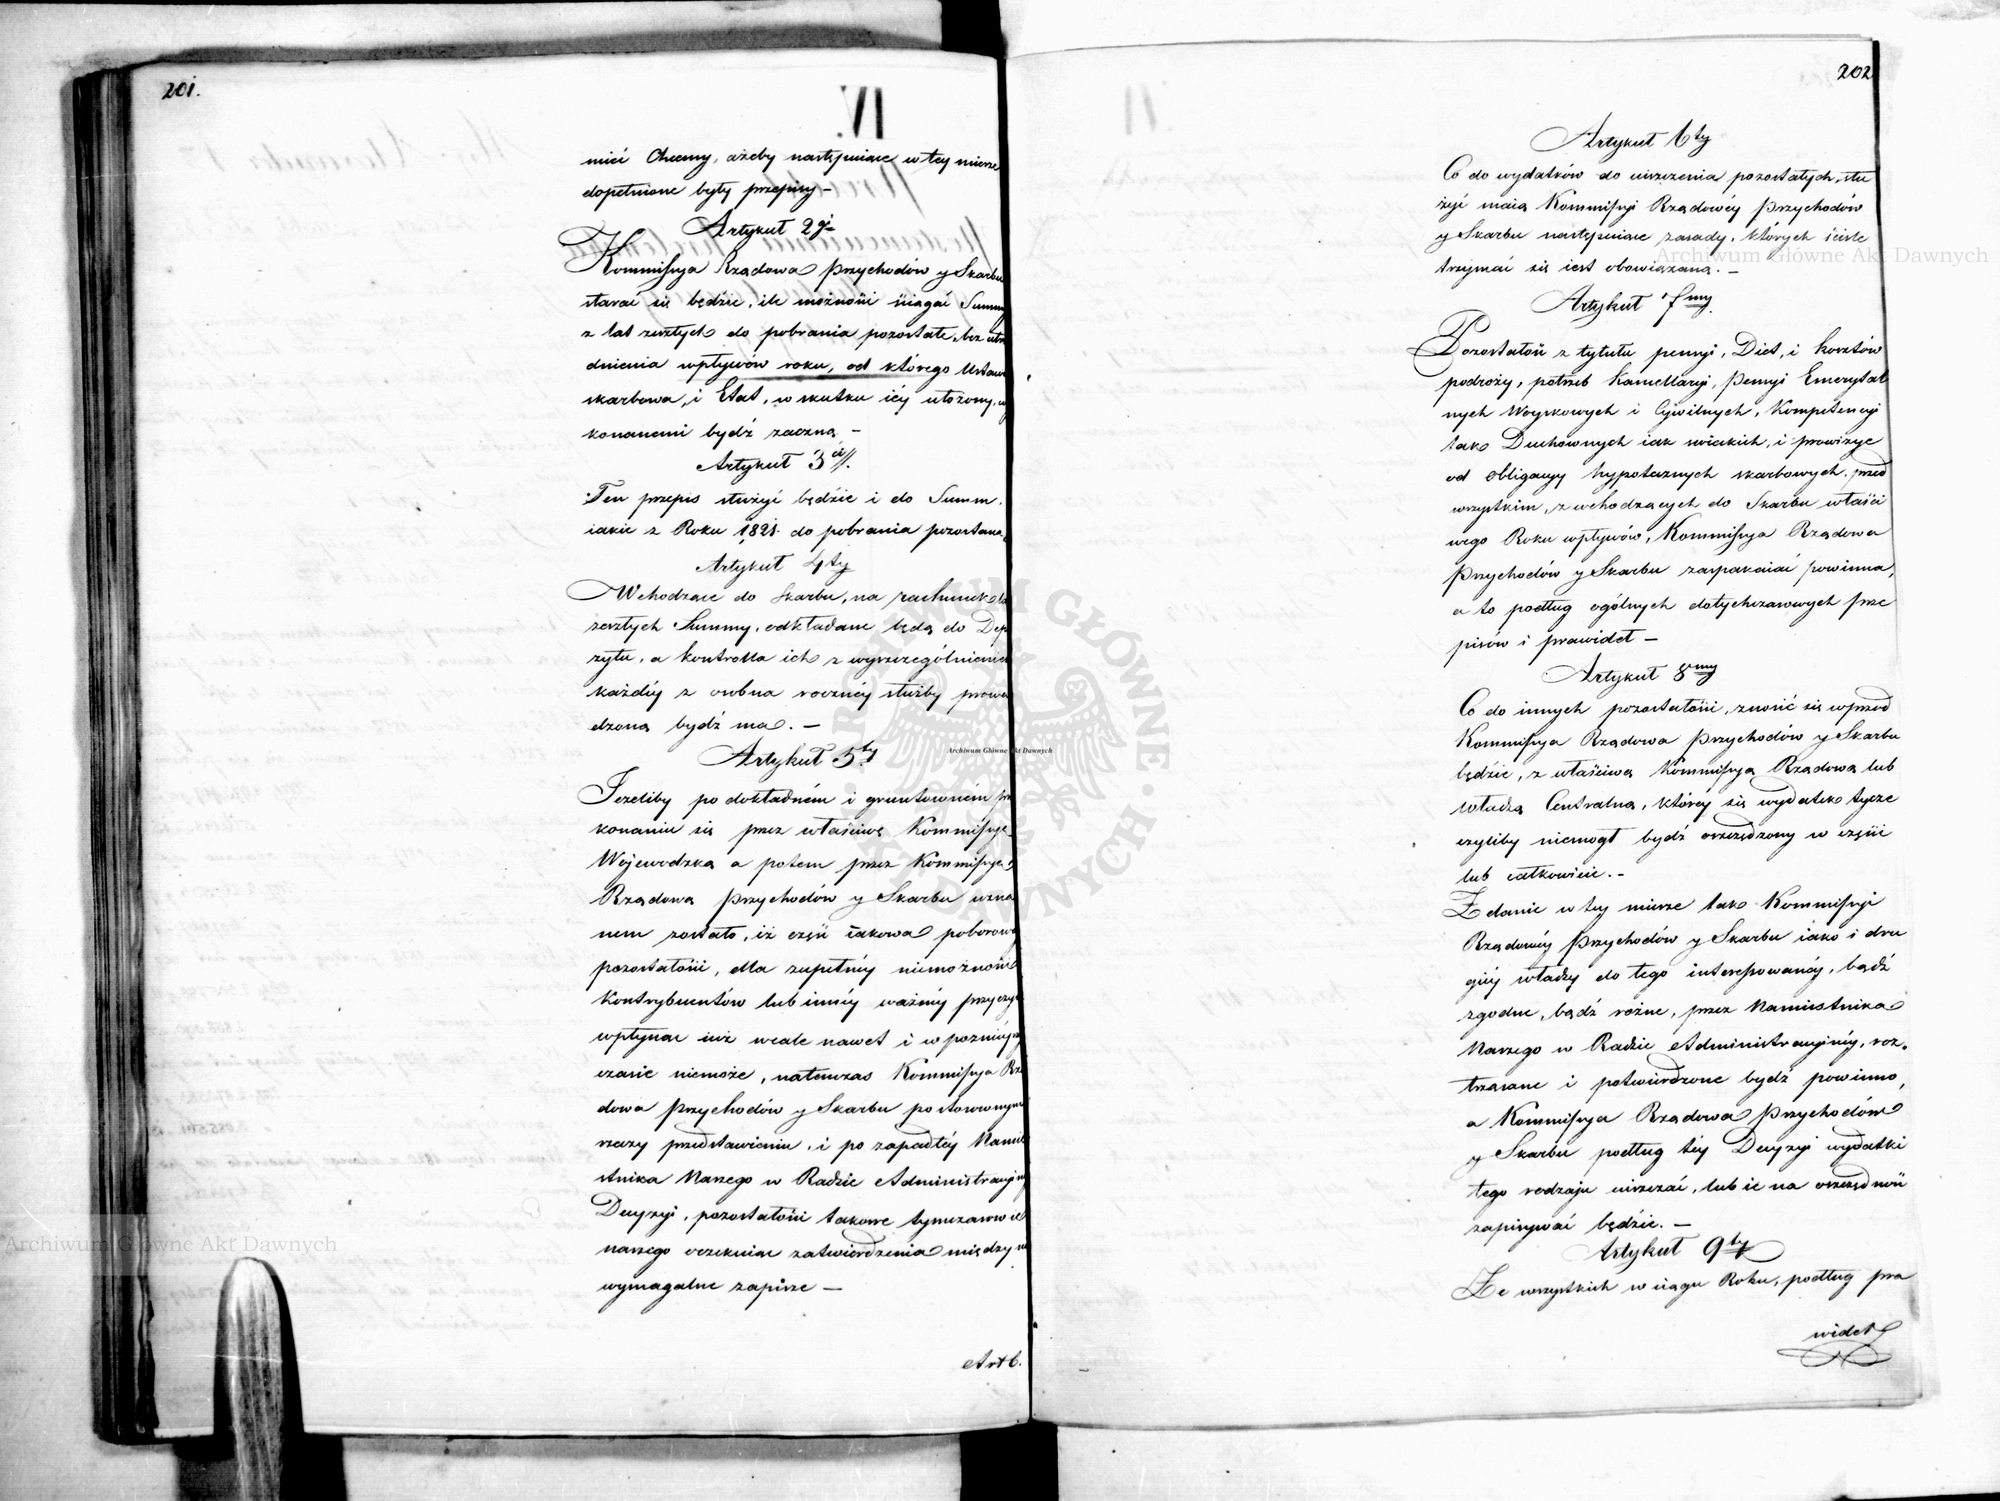 201.
mieć Chcemy, ażeby następuiące w tey mierze
dopełnione były przepisy –
Artykuł 2gi
Kommissya Rządowa Przychodów y Skarbu
starać się będzie, ile możności ściągać Summy
z lat zeszłych do pobrania pozostałe, bez utru
dnienia wpływów roku, od którego Ustawa
skarbowa, i Etat, w skutku iéy ułożony, wy
konanemi bydź zaczną –
Artykuł 3ci
Ten przepis służyć będzie i do Summ.
iakie z Roku 1821. do pobrania pozostaną.
Artykuł 4ty
Wchodzące do Skarbu, na rachunek lat
zeszłych Summy, odkładane będą do Depo
zytu, a kontrolla ich z wyszczególnieniem
każdéy z osobna rocznéy służby prowa
dzona bydź ma. –
Artykuł 5ty
Jeżeliby po dokładném i gruntowném prze
konaniu się przez właściwą Kommissyę
Wojewodzką a potem przez Kommissyę
Rządową Przychodów y Skarbu uzna
nem zostało, iż część iakowa poborowéy
pozostałości, dla zupełnéy niemożności
Kontrybuentów lub innéy ważnéy przyczyny
wpłynąć iuż wcale nawet i w poźniéyszym
czasie niemoże, natenczas Kommissya Rzą
dowa Przychodów y Skarbu po stosownym
rzeczy przedstawieniu, i po zapadłéy Namie
stnika Naszego w Radzie Administracyinéy
Decyzyi, pozostałości takowe tymczasowie
naszego oczekuiąc zatwierdzenia między nie
wymagalne zapisze –
Art 6.
202
Artykuł 6ty
Co do wydatków do uiszczenia pozostałych, słu
żyć maią Kommissyi Rządowéy Przychodów
y Skarbu następuiące zasady, których ściśle
trzymać się iest obowiązaną. –
Artykuł 7my.
Pozostałości z tytułu pensyi, Diet, i kosztów
podroży, potrzeb Kancellaryi, Pensyi Emerytal
nych Woyskowych i Cywilnych, Kompetencyi
tak Duchownych iak świeckich, i prowizye
od obligacyy hypotecznych skarbowych, przed
wszystkiem, z wchodzących do Skarbu właści
wego Roku wpływów, Kommissya Rządowa
Przychodów y Skarbu zaspakaiać powinna,
a to podług ogólnych dotychczasowych prze
pisów i prawideł –
Artykuł 8my
Co do innych pozostałości, znosić się wprzód
Kommissya Rządowa Przychodów y Skarbu
będzie, z właściwą Kommissyą Rządową lub
Władzą Centralną, którey się wydatek tycze
czyliby niemogł bydź oszczędzony w części
lub całkowicie. –
Zdanie w tey mierze tak Kommissyi
Rządowéy Przychodów y Skarbu iako i dru
giéy władzy do tego interessowanéy, bądź
zgodne, bądź rożne, przez Namiestnika
Naszego w Radzie Administracyinéy, roz-
trząsane i potwierdzone bydź powinno,
a Kommissya Rządowa Przychodów
y Skarbu podług téy Decyzyi wydatki
tego rodzaju uiszczać, lub ie na oszczędność
zapisywać będzie. –
Artykuł 9ty
Ze wszystkich w ciągu Roku, podług pra
wideł
Archiwum Główne Akt Dawnych
Archiwum Główne Akt Dawnych
Archiwum Główne Akt Dawnych
ARCHIWUM GŁÓWNE AKT DAWNYCH